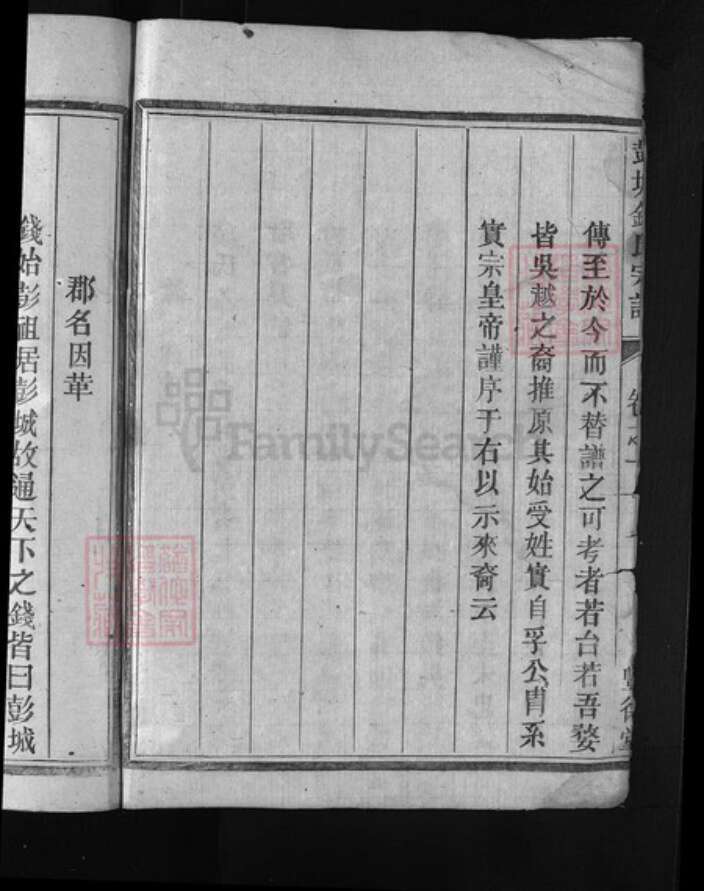 彭城錢氏宗譜
傳至於今而不替譜之可考者若台若吾婺
皆吳越之裔推原其始受姓實自孚公胄系
實宗皇帝謹序于右以示來裔云
郡名因革
錢始彭祖居彭城故通天下之錢皆曰彭城
FamilySearch